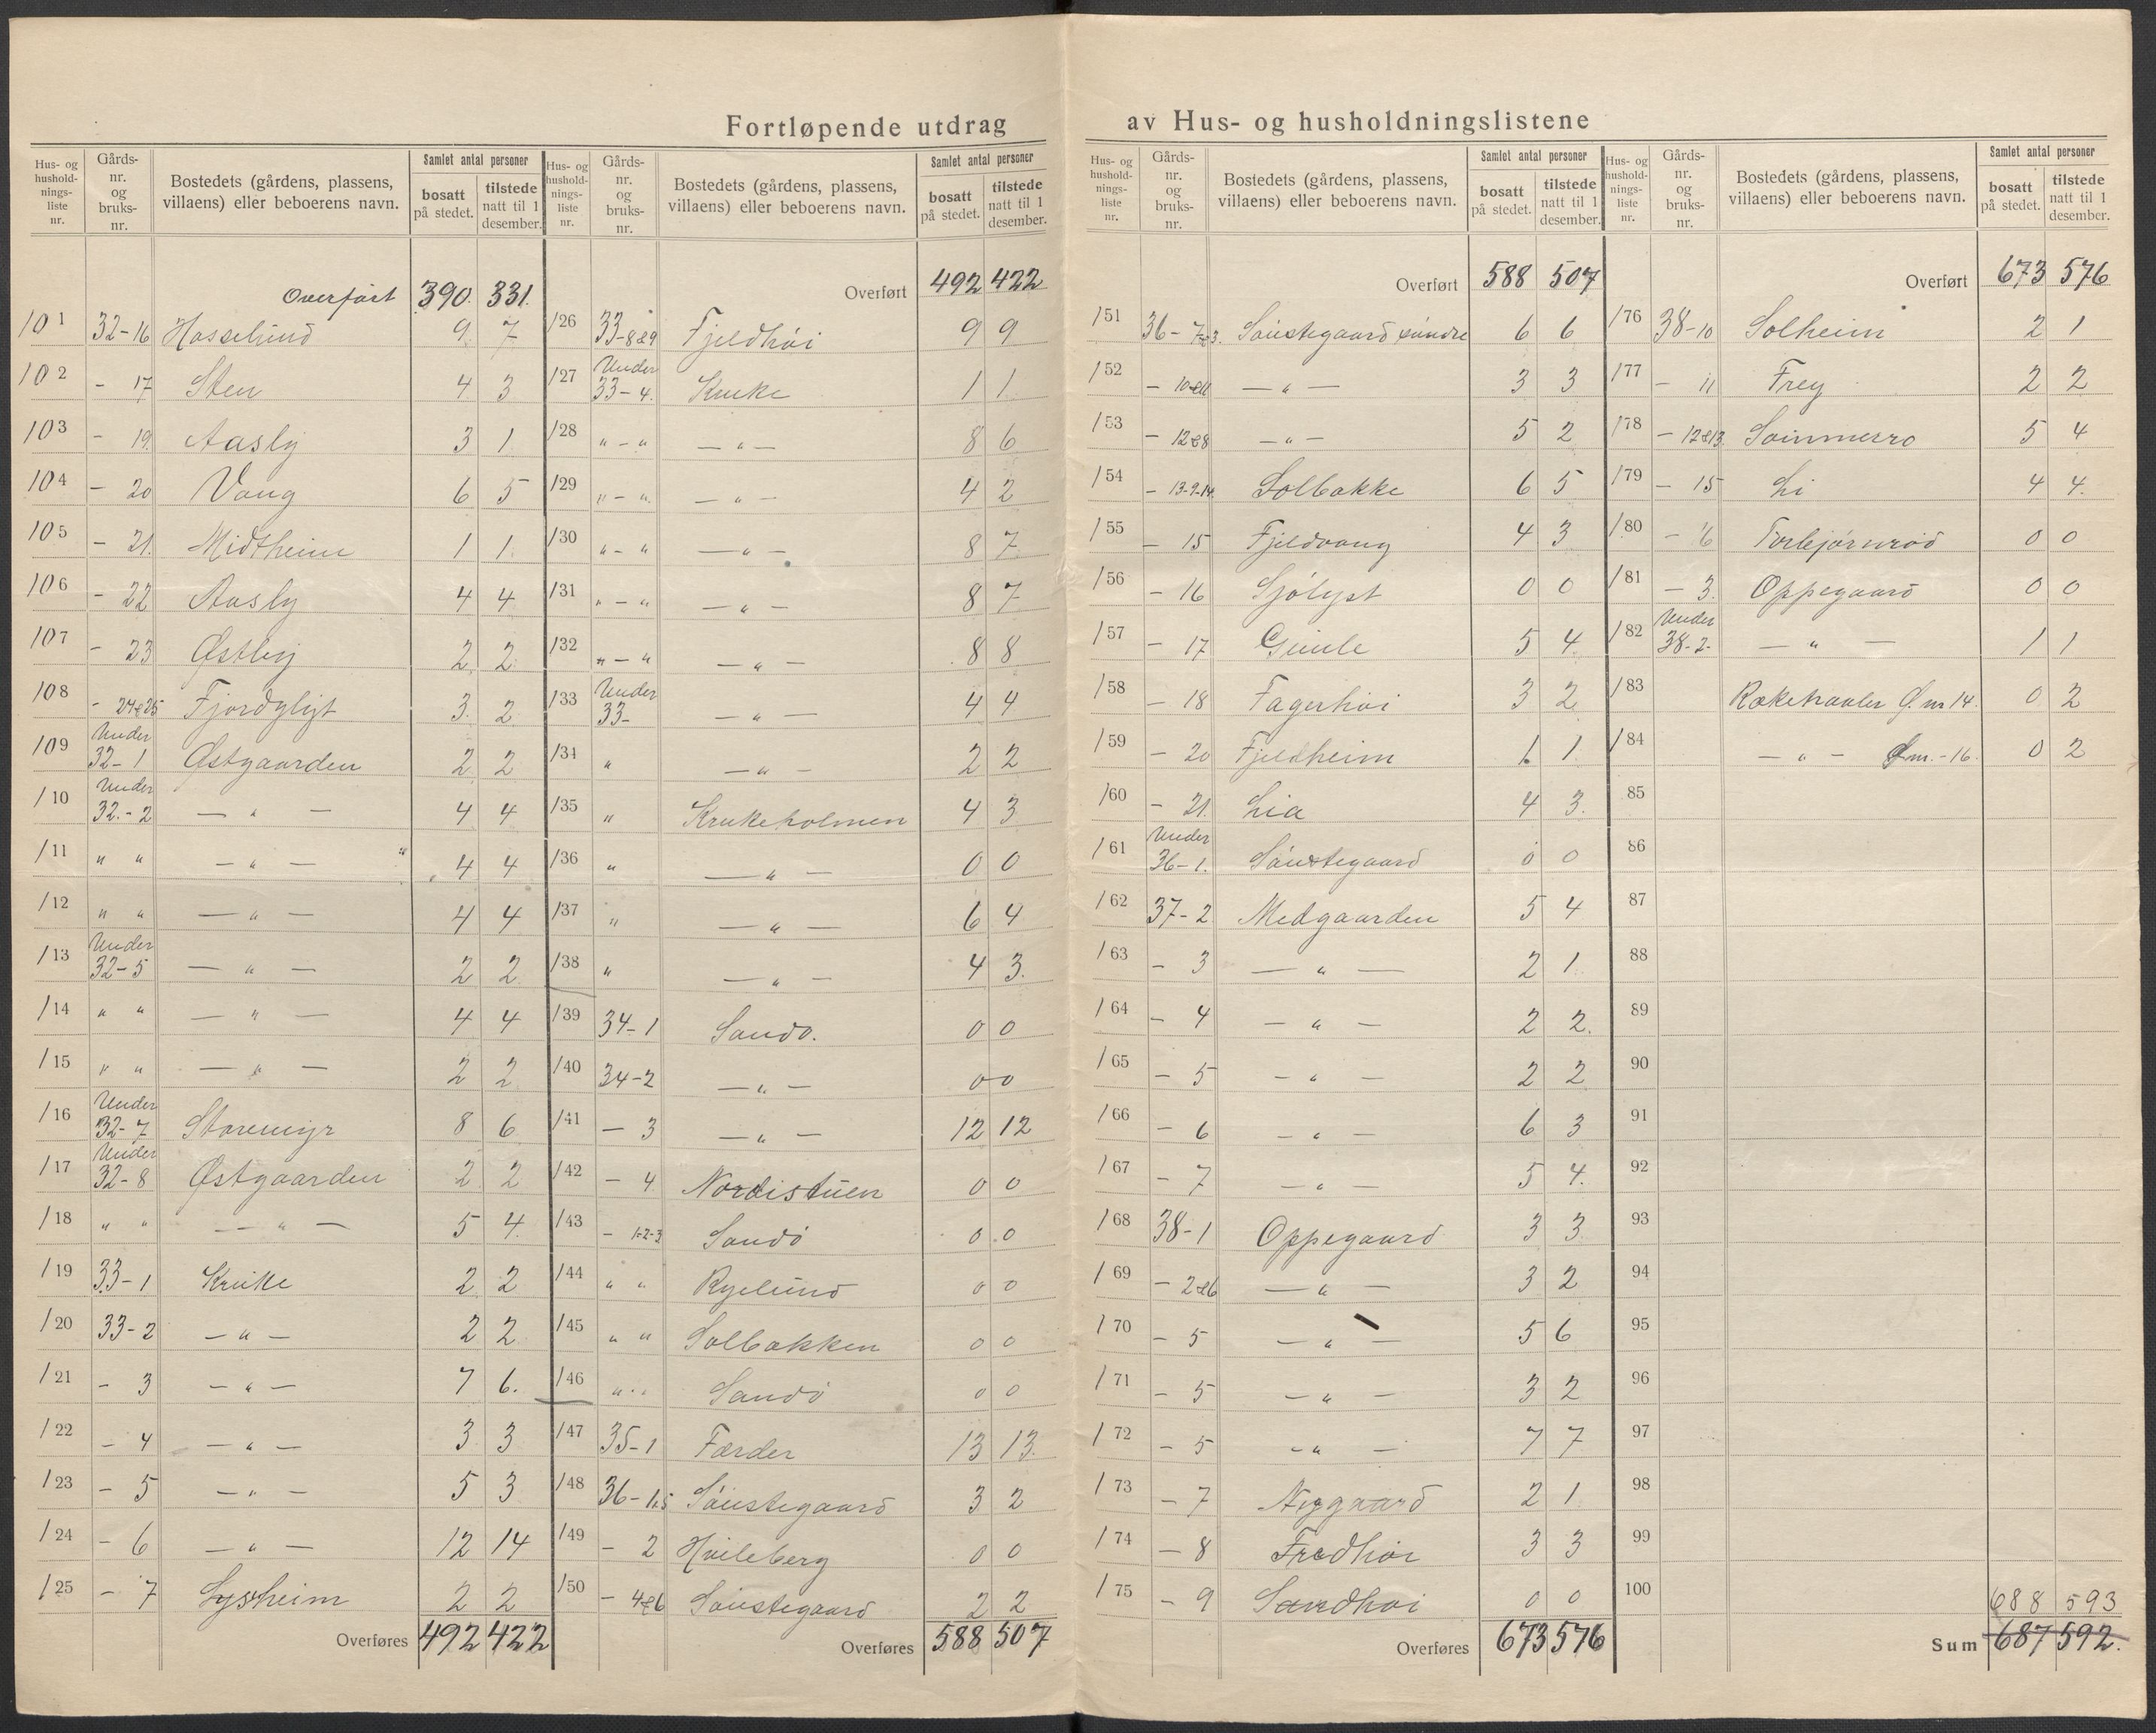 Fortløpende utdrag av Hus- og husholdningslistene
Hus- og hushold-nings-liste nr. | Gårds-nr. og bruks-nr. | Bostedets (gårdens, plassens, villaens) eller beboerens navn. | Samlet antal personer | bosatt på stedet. | tilstede natt til 1 desember.
Overført 390. 331.
101 32-16 Hasselund 9 7
102 - 17 Sten 4 3
103 - 19 Aasly 3 1
104 - 20 Vang 6 5
105 - 21. Midtheim 1 1
106 - 22 Aasly 4 4
107 - 23 Østby 2 2
108 - 24&25 Fjordgløt 3 2
109 Under 32-1 Østgaarden 2 2
110 Under 32.-2 — " — 4 4
111 " " — " — 4 4
112 " " — " — 4 4
113 Under 32-5 — " — 2 2
114 " " — " — 4 4
115 " " — " — 2 2
116 Under 32-7 Storemyr 8 6
117 Under 32-8 Østgaarden 2 2
118 " " — " — 5 4
119 33-1 Kruke 2 2
120 33-2 — " — 2 2
121 - 3 — " — 7 6.
122 - 4 — " — 3 3
123 - 5 — " — 5 3
124 - 6 — " — 12 14
125 - 7 Lysheim 2 2
Overføres 492 422
Hus- og hushold-nings-liste nr. | Gårds-nr. og bruks-nr. | Bostedets (gårdens, plassens, villaens) eller beboerens navn. | Samlet antal personer | bosatt på stedet. | tilstede natt til 1 desember.
Overført 492 422
126 33-8&9 Fjeldhøi 9 9
127 Under 33-4. Kruke 1 1
128 " - " — " — 8 6
129 " - " — " — 4 2
130 " - " — " — 8 7
131 " - " — " — 8 7
132 " - " — " — 8 8
133 Under 33- — " — 4 4
134 " — " — 2 2
135 " Krukeholmen 4 3
136 " — " — 0 0
137 " — " — 6 4
138 " — " — 4 3.
139 34-1 Sandø. 0 0
140 34-2 — " — 0 0
141 — 3 — " — 12 12
142 — 4 Nordistuen 0 0
143 — 1-2-3 Sandø 0 0
144 " " Ryelund 0 0
145 " " Solbakken 0 0
146 " " Sandø 0 0
147 35-1 Færder 13 13.
148 36-1.5 Søustegaard 3 2
149 - 2 Hvileberg 0 0
150 - 4&6 Søustegaard 2 2
Overføres 588 507
Hus- og hushold-nings-liste nr. | Gårds-nr. og bruks-nr. | Bostedets (gårdens, plassens, villaens) eller beboerens navn. | Samlet antal personer | bosatt på stedet. | tilstede natt til 1 desember.
Overført 588 507
151 36-7&3. Søustegaard søndre 6 6
152 - 10&11 — " — 3 3
153 - 12&8 — " — 5 2
154 - 13-9-14. Solbakke 6 5
155 - 15 Fjeldvang 4 3
156 - 16 Sjølyst 0 0
157 - 17 Gimle 5 4
158 - 18 Fagerhøi 3 2
159 - 20 Fjeldheim 1 1
160 - 21. Lia 4 3.
161 Under 36-1. Søustegaard 0 0
162 37-2 Medgaarden 5 4
163 - 3 — " — 2 1
164 - 4 — " — 2 2.
165 - 5 — " — 2 2
166 - 6 — " — 6 3
167 - 7 — " — 5 4.
168 38-1 Oppegaard 3 3
169 - 2&6 — " — 3 2
170 - 5 — " — 5 6
171 - 5 — " — 3 2
172 - 5 — " — 7 7
173 - 7 Nygaard 2 1
174 - 8 Fredhøi 3 3
175 - 9 Sandhøi 0 0
Overføres 673 576
Hus- og hushold-nings-liste nr. | Gårds-nr. og bruks-nr. | Bostedets (gårdens, plassens, villaens) eller beboerens navn. | Samlet antal personer | bosatt på stedet. | tilstede natt til 1 desember.
Overført 673 576
176 38-10 Solheim 2 1
177 - 11 Frey 2 2
178 - 12&13. Sommerro 5 4
179 - 15 Li 4 4.
180 - 16 Torbjørnrød 0 0
181 - 3. Oppegaard 0 0
182 Under 38-2- — " — 1 1
183 Ræketraaler Ø. nr 14. 0 2
184 — " — Ø nr. - 16. 0 2
85
86
87
88
89
90
91
92
93
94
95
96
97
98
99
100
688 593
Sum 687 592.